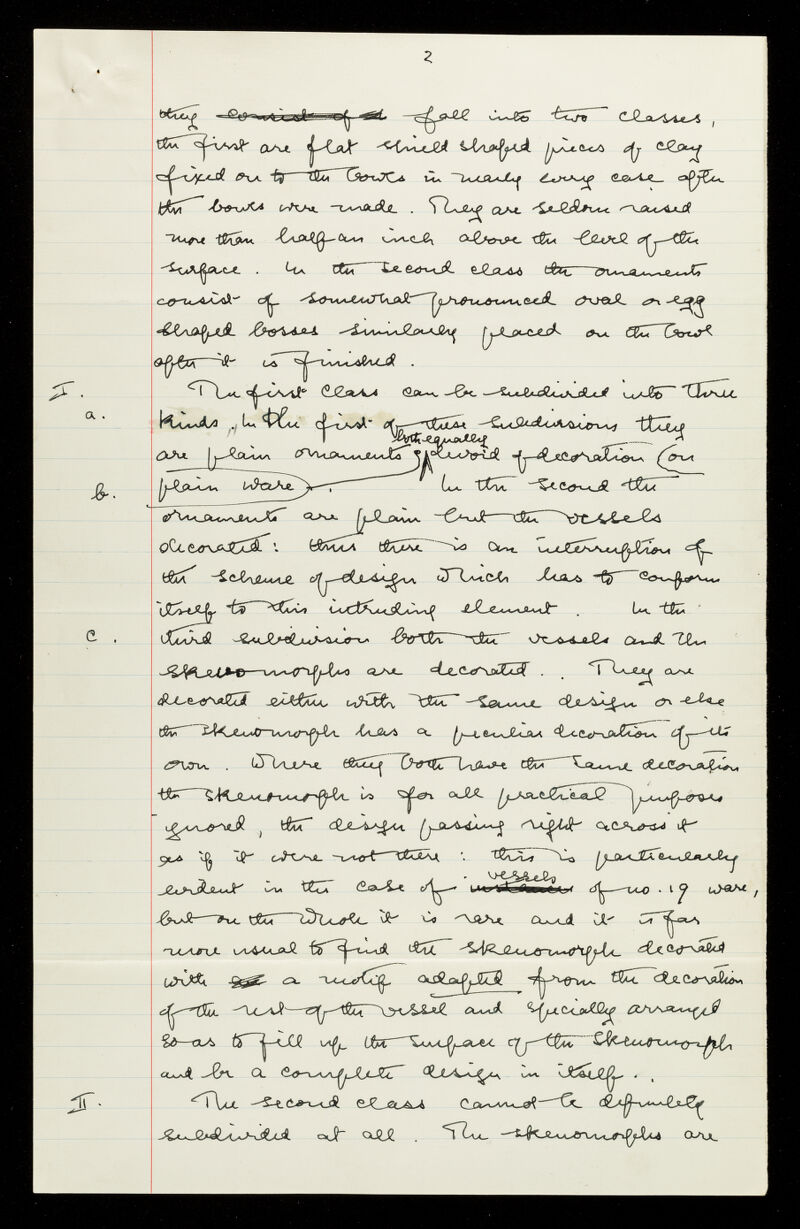 2
they consist of a fall into two classes,
the first are flat shield shaped pieces of clay
fixed on to the bowls in nearly every case after
the bowls were made. They are seldom raised
more than half an inch above the level of the
surface. In the second class the ornaments
consist of somewhat pronounced oval or egg
shaped bosses similarly placed on the bowl
after it is finished.
I. The first class can be subdivided into three
a. kinds. In the first of these subdivisions they
are plain ornaments both equally devoid of decoration (on
b. plain ware). In the second the
ornaments are plain but the vessels
decorated: thus there is an interruption of
the scheme of design which has to conform
itself to this intruding element. In the
c. third subdivision both the vessels and the
skeuomorphs are decorated.. They are
decorated either with the same design or else
the skeuomorph has a peculiar decoration of its
own. Where they both have the same decoration
the skeuomorph is for all practical purposes
ignored, the design passing right across it
as if it were not there: this is particularly
evident in the case of vessels of no. 19 ware,
but on the whole it is rare and it is far
more usual to find the skeuomorph decorated
with a motif adapted from the decoration
of the rest of the vessel and specially arranged
so as to fill up the surface of the skeuomorph
and be a complete design in itself..
II. The second class cannot be definitely
subdivided at all. The skeuomorphs are